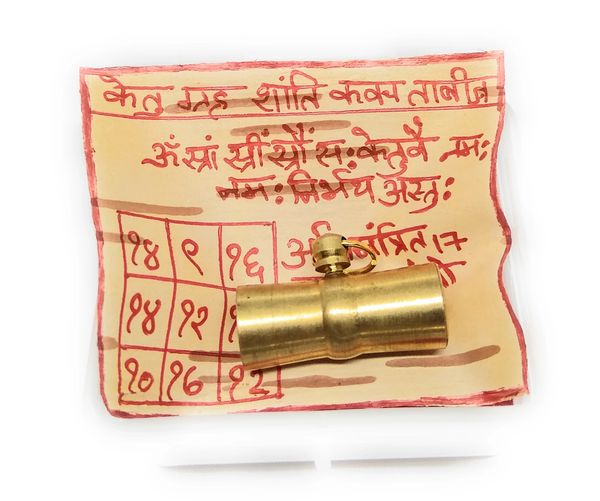 केतु ग्रह शांति कवच ताबीज
ॐ स्रां स्रीं स्रौं सः केतुवै नमः
नमः निर्भय अस्तुः
१४ ९ १६
१४ १२
१० १६ १२